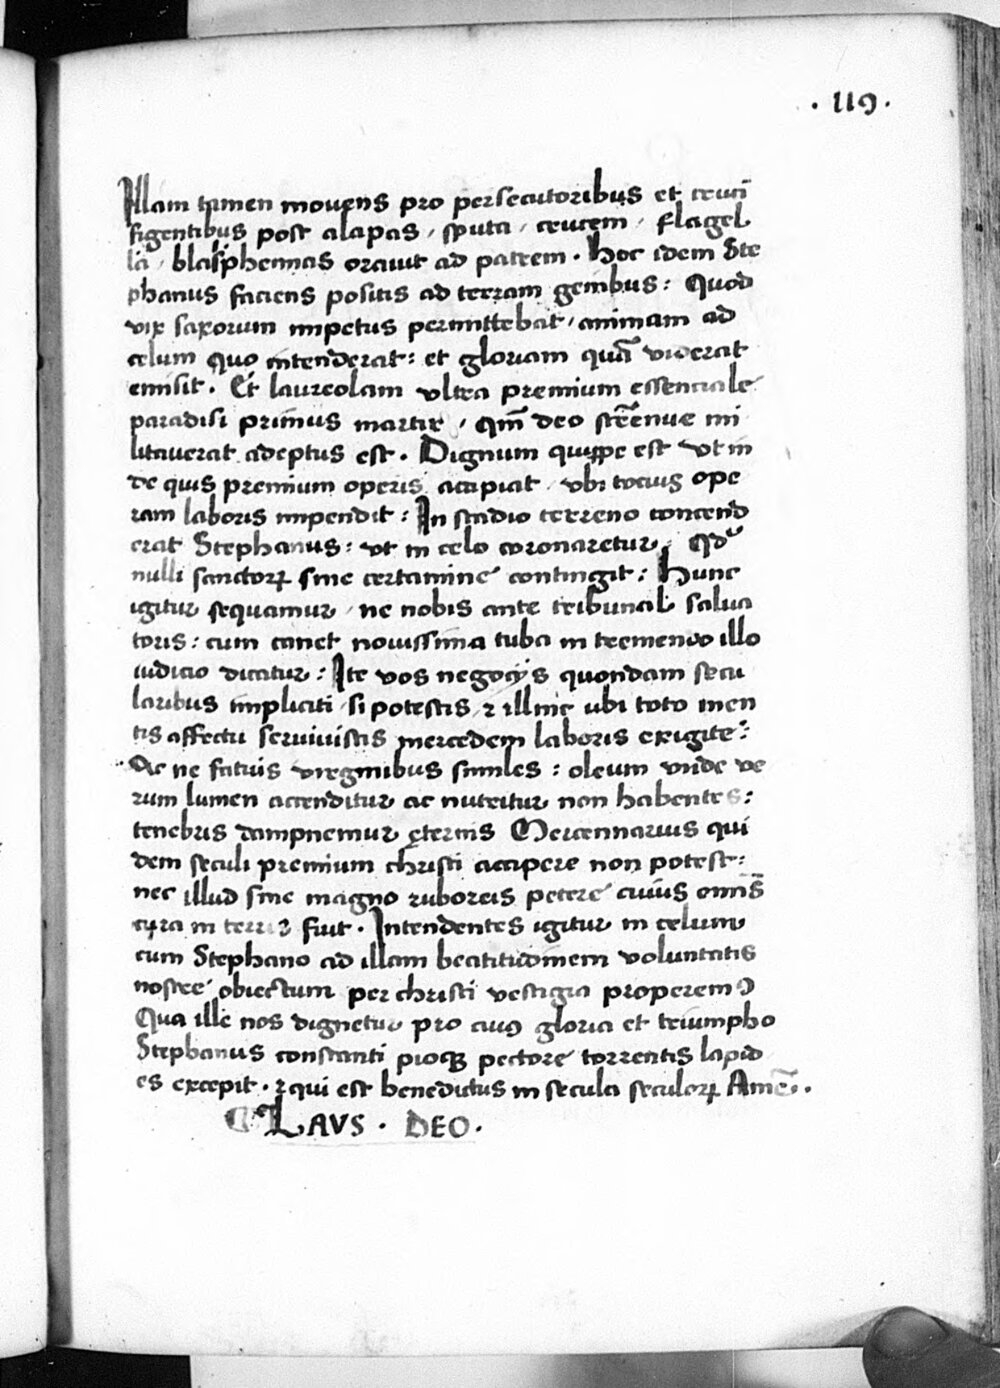 · 119 ·
Illam tamen mouens pro persecutoribus et cruci
figentibus post alapas, sputa, crucem, flagel
la, blasphemias orauit ad patrem. Hoc idem Ste
phanus faciens positis ad terram genibus: Quod
vix saxorum impetus permittebat, animam ad
celum quo intenderat: et gloriam quā viderat
emisit. Et laureolam vltra premium essenciale
paradisi primus martir, qm̄ deo strēnue mi
litauerat adeptus est. Dignum quippe est vt in
de quis premium operis accipiat, vbi tocius ope
ram laboris impendit: In stadio terreno contend
erat Stephanus: vt in celo coronaretur, Qđ
nulli sanctoꝝ sine certamine contingit: Hunc
igitur sequamur, ne nobis ante tribunal salua
toris: cum canet nouissima tuba in tremendo illo
iudicio dicatur: Ite vos negocijs quondam secu
laribus impliciti, si potestis, ⁊ illinc ubi toto men
tis affectu seruiuistis mercedem laboris exigite:
Ac ne fatuis virginibus similes: oleum vnde ve
rum lumen accenditur ac nutritur non habentes:
tenebris dampnemur ęternis Mercennarius qui
dem seculi premium christi accipere non potest:
nec illud sine magno ruboris petere cuius omīs
cura in terris fuit. Intendentes igitur in celum
cum Stephano ad illam beatitudinem voluntatis
nostre obiectum per christi vestigia properemꝰ
Qua ille nos dignetur pro cuiꝰ gloria et triumpho
Stephanus constanti pioqꝫ pectore torrentis lapid
es excepit. ⁊ qui est benedictus in secula seculoꝝ Amē.
LAVS · DEO.